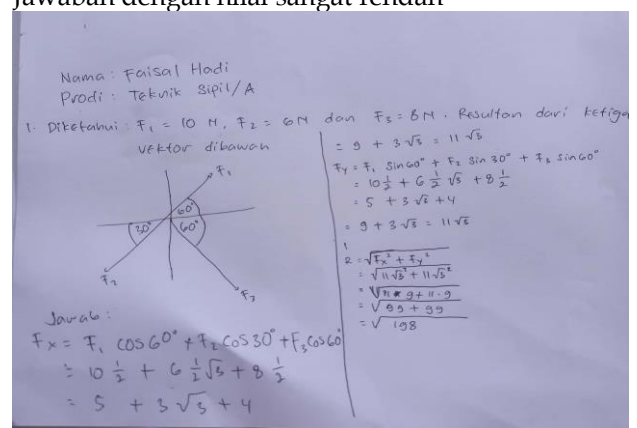 Jawaban dengan nilai sangat rendah
Nama : Faisal Hadi
Prodi : Teknik Sipil/A
1. Diketahui : F₁ = 10 N, F₂ = 6N dan F₃ = 8N. Resultan dari ketiga
vektor dibawah
F₁
60°
30°
60°
F₂
F₃
Jawab :
Fx = F₁ cos60° + F₂ cos30° + F₃ cos60°
= 10 1/2 + 6 1/2 √3 + 8 1/2
= 5 + 3√3 + 4
= 9 + 3√3 = 11√3
Fy = F₁ sin60° + F₂ sin 30° + F₃ sin60°
= 10 1/2 + 6 1/2 √3 + 8 1/2
= 5 + 3√3 + 4
= 9 + 3√3 = 11√3
R = √Fx² + Fy²
= √11√3² + 11√3²
= √11 * 9 + 11 · 9
= √99 + 99
= √198